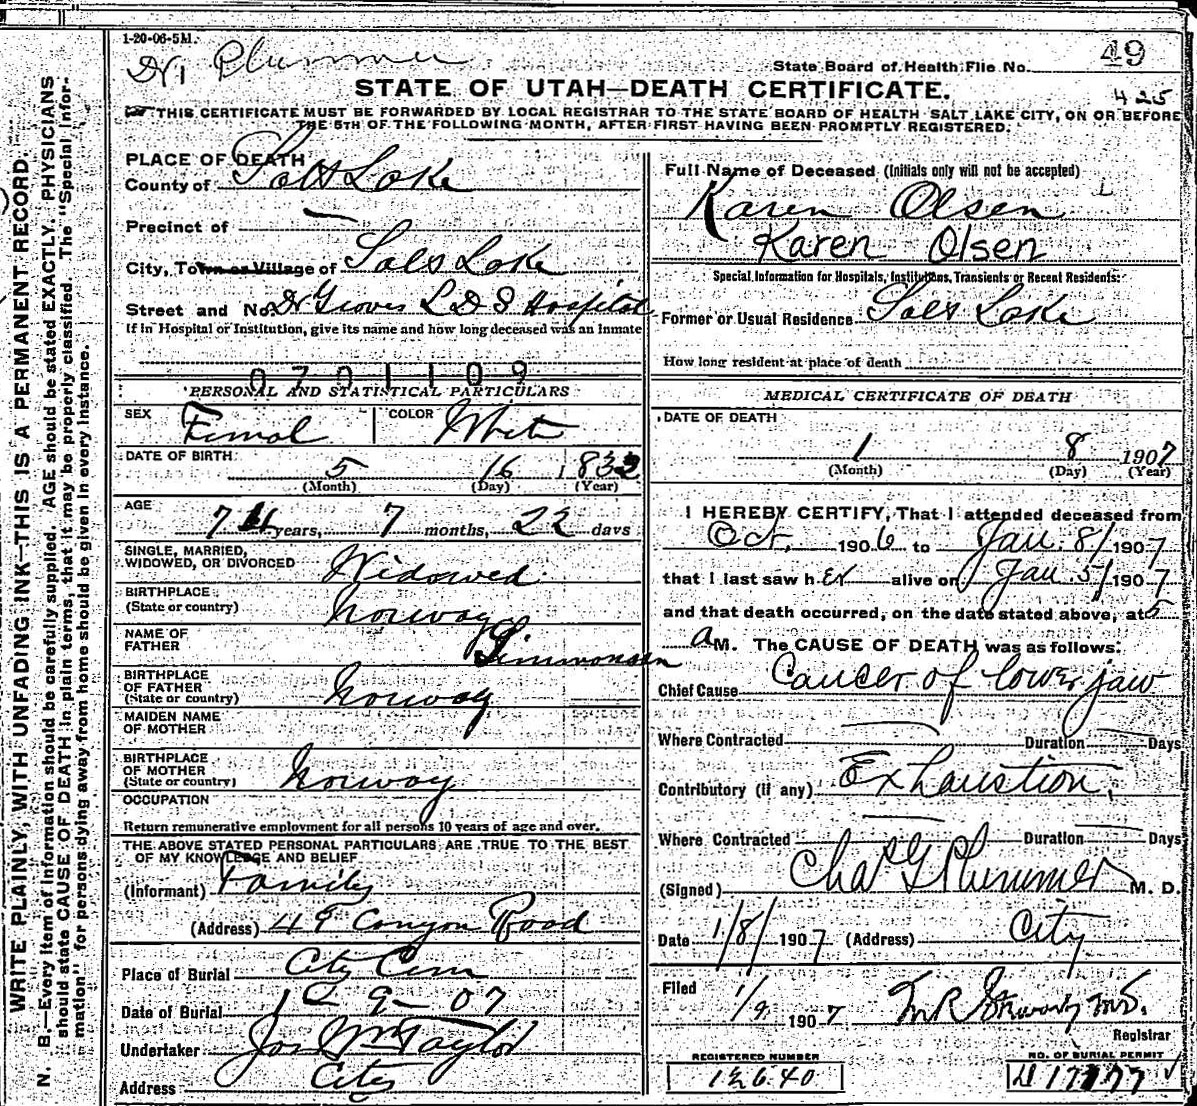 1-20-06-5M.
Dr Plummer
49
State Board of Health File No.
425
STATE OF UTAH—DEATH CERTIFICATE.
THIS CERTIFICATE MUST BE FORWARDED BY LOCAL REGISTRAR TO THE STATE BOARD OF HEALTH SALT LAKE CITY, ON OR BEFORE
THE 5TH OF THE FOLLOWING MONTH, AFTER FIRST HAVING BEEN PROMPTLY REGISTERED.
WRITE PLAINLY, WITH UNFADING INK—THIS IS A PERMANENT RECORD.
N. B.—Every item of information should be carefully supplied. AGE should be stated EXACTLY. PHYSICIANS
should state CAUSE OF DEATH in plain terms, that it may be properly classified. The "Special Infor-
mation" for persons dying away from home should be given in every instance.
PLACE OF DEATH
County of Salt Lake
Precinct of —
City, Town or Village of Salt Lake
Street and No. Dr Groves L D S Hospital
If in Hospital or Institution, give its name and how long deceased was an inmate
0701109
PERSONAL AND STATISTICAL PARTICULARS
SEX Femal COLOR White
DATE OF BIRTH
5 16 1832
(Month) (Day) (Year)
AGE
7 years, 7 months, 22 days
SINGLE, MARRIED,
WIDOWED, OR DIVORCED Widowed
BIRTHPLACE
(State or country) Norway
NAME OF
FATHER Simmonsen
BIRTHPLACE
OF FATHER
(State or country) Norway
MAIDEN NAME
OF MOTHER
BIRTHPLACE
OF MOTHER
(State or country) Norway
OCCUPATION
Return remunerative employment for all persons 10 years of age and over.
THE ABOVE STATED PERSONAL PARTICULARS ARE TRUE TO THE BEST
OF MY KNOWLEDGE AND BELIEF
(Informant) Family
(Address) 4 E Canyon Road
Place of Burial City Cem
Date of Burial 1 - 9 - 07
Undertaker Jos Wm Taylor
Address City
Full Name of Deceased (Initials only will not be accepted)
Karen Olsen
Karen Olsen
Special Information for Hospitals, Institutions, Transients or Recent Residents:
Former or Usual Residence Salt Lake
How long resident at place of death
MEDICAL CERTIFICATE OF DEATH
DATE OF DEATH
1 8 1907
(Month) (Day) (Year)
I HEREBY CERTIFY, That I attended deceased from
Oct. 1906 to Jan. 8/ 1907
that I last saw h er alive on Jan. 5/ 1907
and that death occurred, on the date stated above, at 5
a M. The CAUSE OF DEATH was as follows:
Chief Cause Cancer of lower jaw
Where Contracted — Duration — Days
Contributory (if any) Exhaustion,
Where Contracted — Duration — Days
(Signed) Chas G Plummer M. D.
Date 1/8/ 1907 (Address) City
Filed 1/9 1907
Registrar
REGISTERED NUMBER
12640
NO. OF BURIAL PERMIT